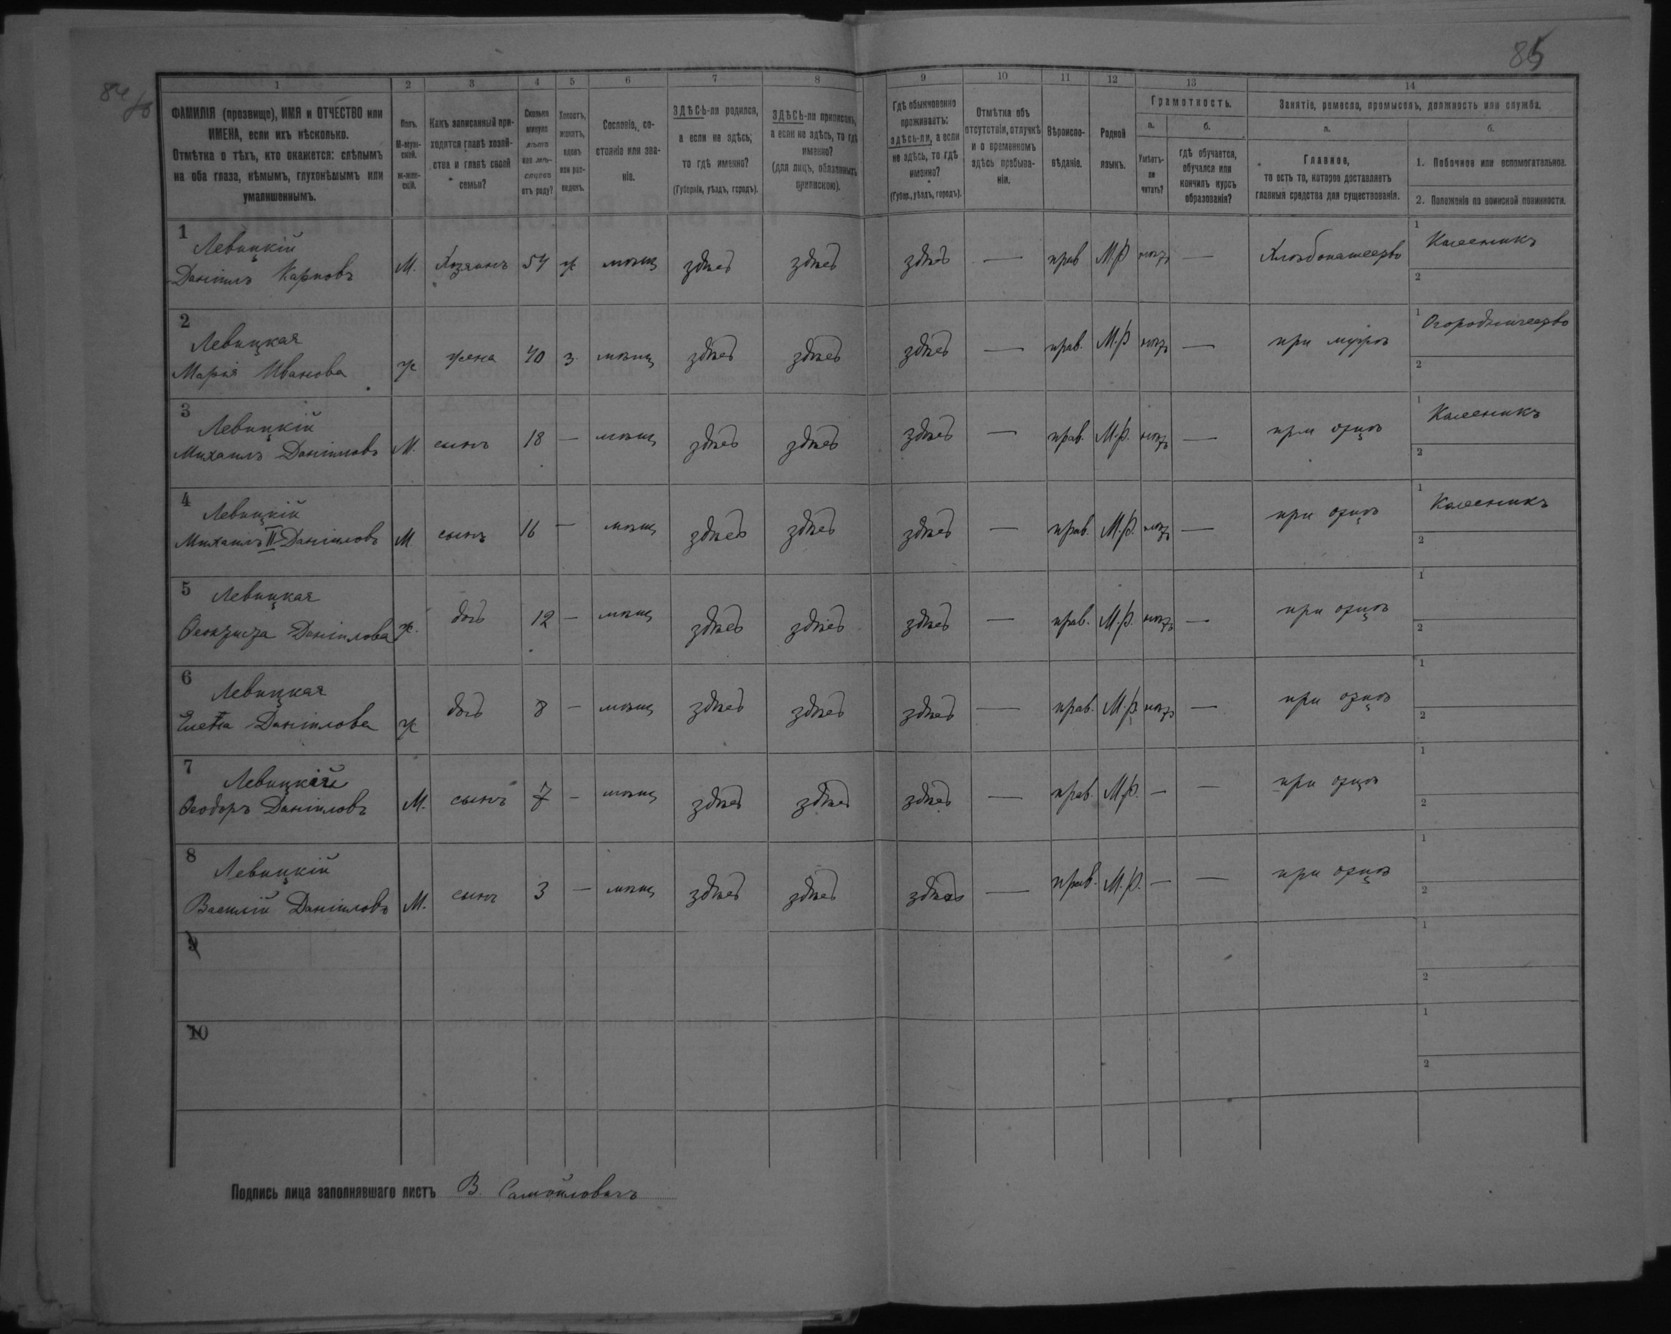 85
1 2 3 4 5 6 7 8 9 10 11 12 13 14
ФАМИЛІЯ (прозвище), ИМЯ и ОТЧЕСТВО или ИМЕНА, если ихъ нѣсколько.
Отмѣтка о тѣхъ, кто окажется: слѣпымъ на оба глаза, нѣмымъ, глухонѣмымъ или умалишеннымъ.
Полъ.
М-мужской.
ж-женскій.
Какъ записанный приходится главѣ хозяйства и главѣ своей семьи?
Сколько минуло лѣтъ или мѣсяцевъ отъ роду?
Холостъ, женатъ, вдовъ или разведенъ.
Сословіе, состояніе или званіе.
ЗДѢСЬ-ли родился, а если не здѣсь, то гдѣ именно?
(Губернія, уѣздъ, городъ).
ЗДѢСЬ-ли приписанъ, а если не здѣсь, то гдѣ именно?
(для лицъ, обязанныхъ припискою).
Гдѣ обыкновенно проживаетъ: здѣсь-ли, а если не здѣсь, то гдѣ именно?
(Губер., уѣздъ, городъ).
Отмѣтка объ отсутствіи, отлучкѣ и о временномъ здѣсь пребываніи.
Вѣроисповѣданіе.
Родной языкъ.
Грамотность.
а.
Умѣетъ-ли читать?
б.
гдѣ обучается, обучался или кончилъ курсъ образованія?
Занятіе, ремесло, промыселъ, должность или служба.
а.
Главное,
то есть то, которое доставляетъ главныя средства для существованія.
б.
1. Побочное или вспомогательное.
2. Положеніе по воинской повинности.
1 Левицкій
Даніилъ Карповъ М. Хозяинъ 54 ж мѣщ здѣсь здѣсь здѣсь — прав М.Р — Хлѣбопашество 1 Колесникъ
2
2 Левицкая
Марія Иванова ж жена 40 з. мѣщ здѣсь здѣсь здѣсь — прав. М.Р — при мужѣ 1 Огородничество
2
3 Левицкій
Михаилъ Даніиловъ М. сынъ 18 — мѣщ здѣсь здѣсь здѣсь — прав. М.Р. — при отцѣ 1 Колесникъ
2
4 Левицкій
Михаилъ II Даніиловъ М сынъ 16 — мѣщ здѣсь здѣсь здѣсь — прав. М.Р. — при отцѣ 1 Колесникъ
2
5 Левицкая
Даніилова ж. дочь 12 — мѣщ здѣсь здѣсь здѣсь — прав. М.Р. — при отцѣ 1
2
6 Левицкая
Елена Даніилова ж дочь 8 — мѣщ здѣсь здѣсь здѣсь — прав. М.Р — при отцѣ 1
2
7 Левицкій
Ѳеодоръ Даніиловъ М. сынъ 7 — мѣщ здѣсь здѣсь здѣсь — прав. М.Р. — — при отцѣ 1
2
8 Левицкій
Василій Даніиловъ М. сынъ 3 — мѣщ здѣсь здѣсь здѣсь — прав. М.Р. — — при отцѣ 1
2
9 1
2
10 1
2
Подпись лица заполнявшаго листъ В. Самойловичъ